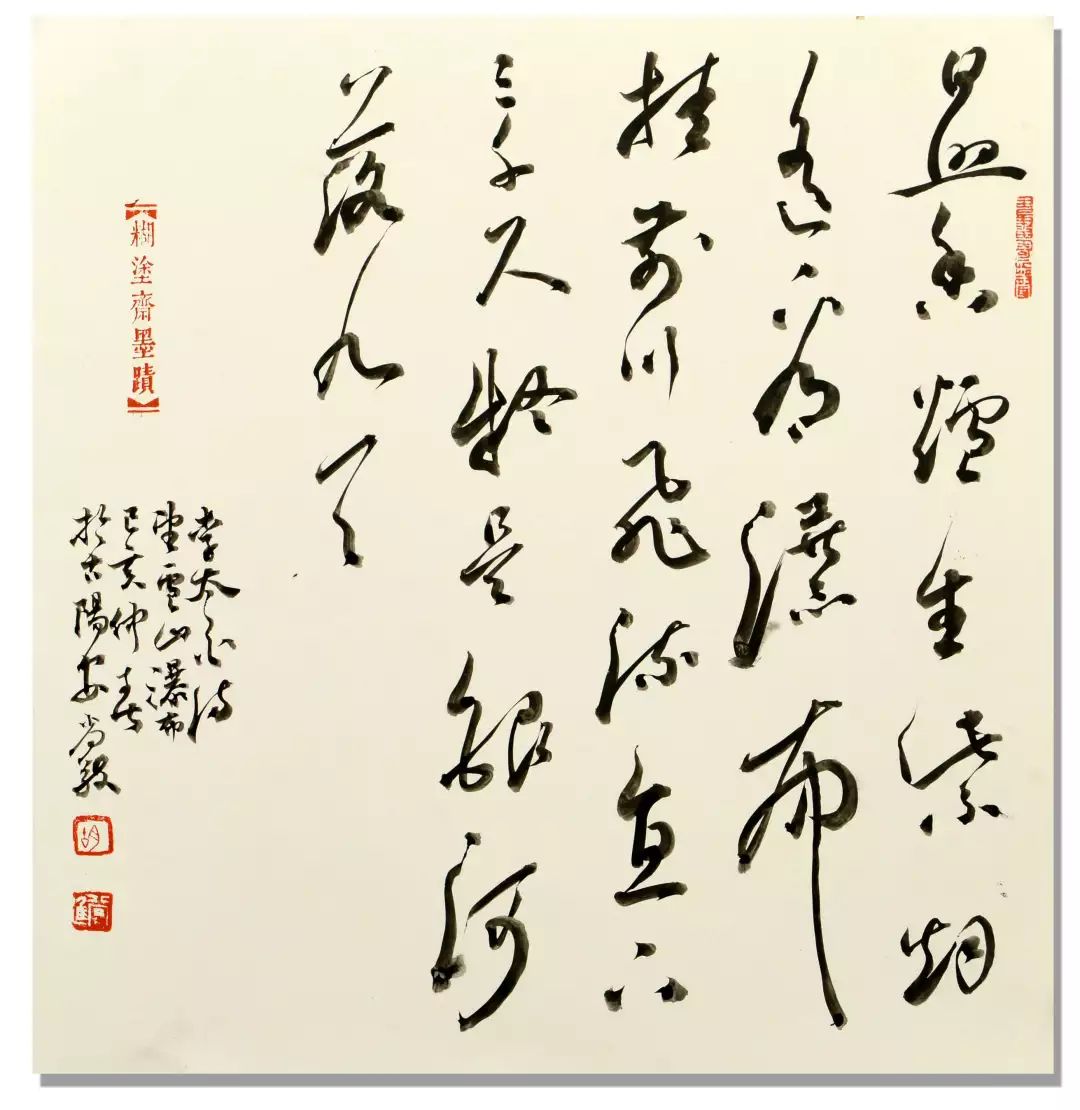 日照香爐生紫烟
遙看瀑布
挂前川飛流直下
三千尺疑是銀河
落九天
糊塗齋墨蹟
李太白詩
望廬山瀑布
己亥仲春
於古陽安尚毅
胡